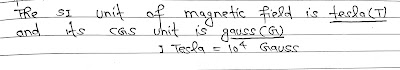 The SI unit of magnetic field is tesla (T)
and its CGS unit is gauss (G)
1 Tesla = 10⁴ Gauss